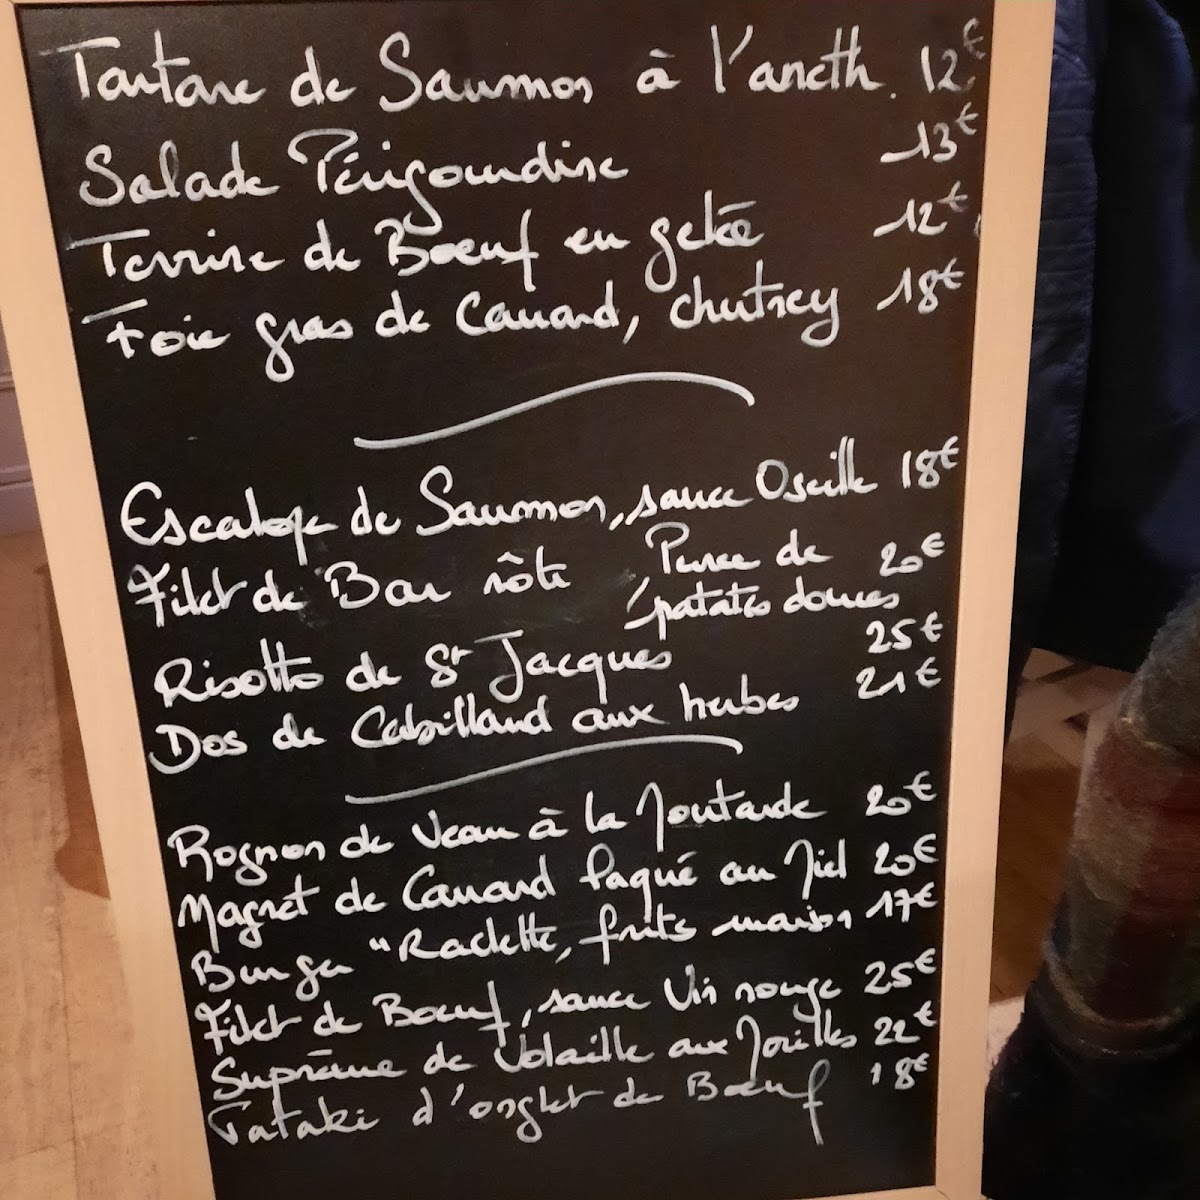 Tartare de Saumon à l'aneth. 12€
Salade Périgourdine 13€
Terrine de Boeuf en gelée 12€
Foie gras de Canard, chutney 18€
Escalope de Saumon, sauce Oseille 18€
Filet de Bar rôti, Purée de patates douces 20€
Risotto de St Jacques 25€
Dos de Cabillaud aux herbes 21€
Rognon de Veau à la Moutarde 20€
Magret de Canard laqué au Miel 20€
Burger "Raclette, frites maison 17€
Filet de Boeuf, sauce Vin rouge 25€
Suprême de Volaille aux Morilles 22€
Tataki d'onglet de Boeuf 18€